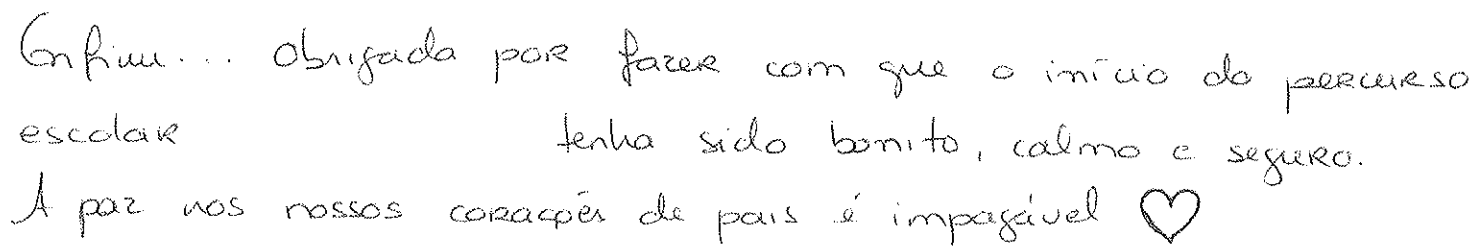 Enfim... obrigada por fazer com que o início do percurso
escolar tenha sido bonito, calmo e seguro.
A paz nos nossos corações de pais é impagável ♡